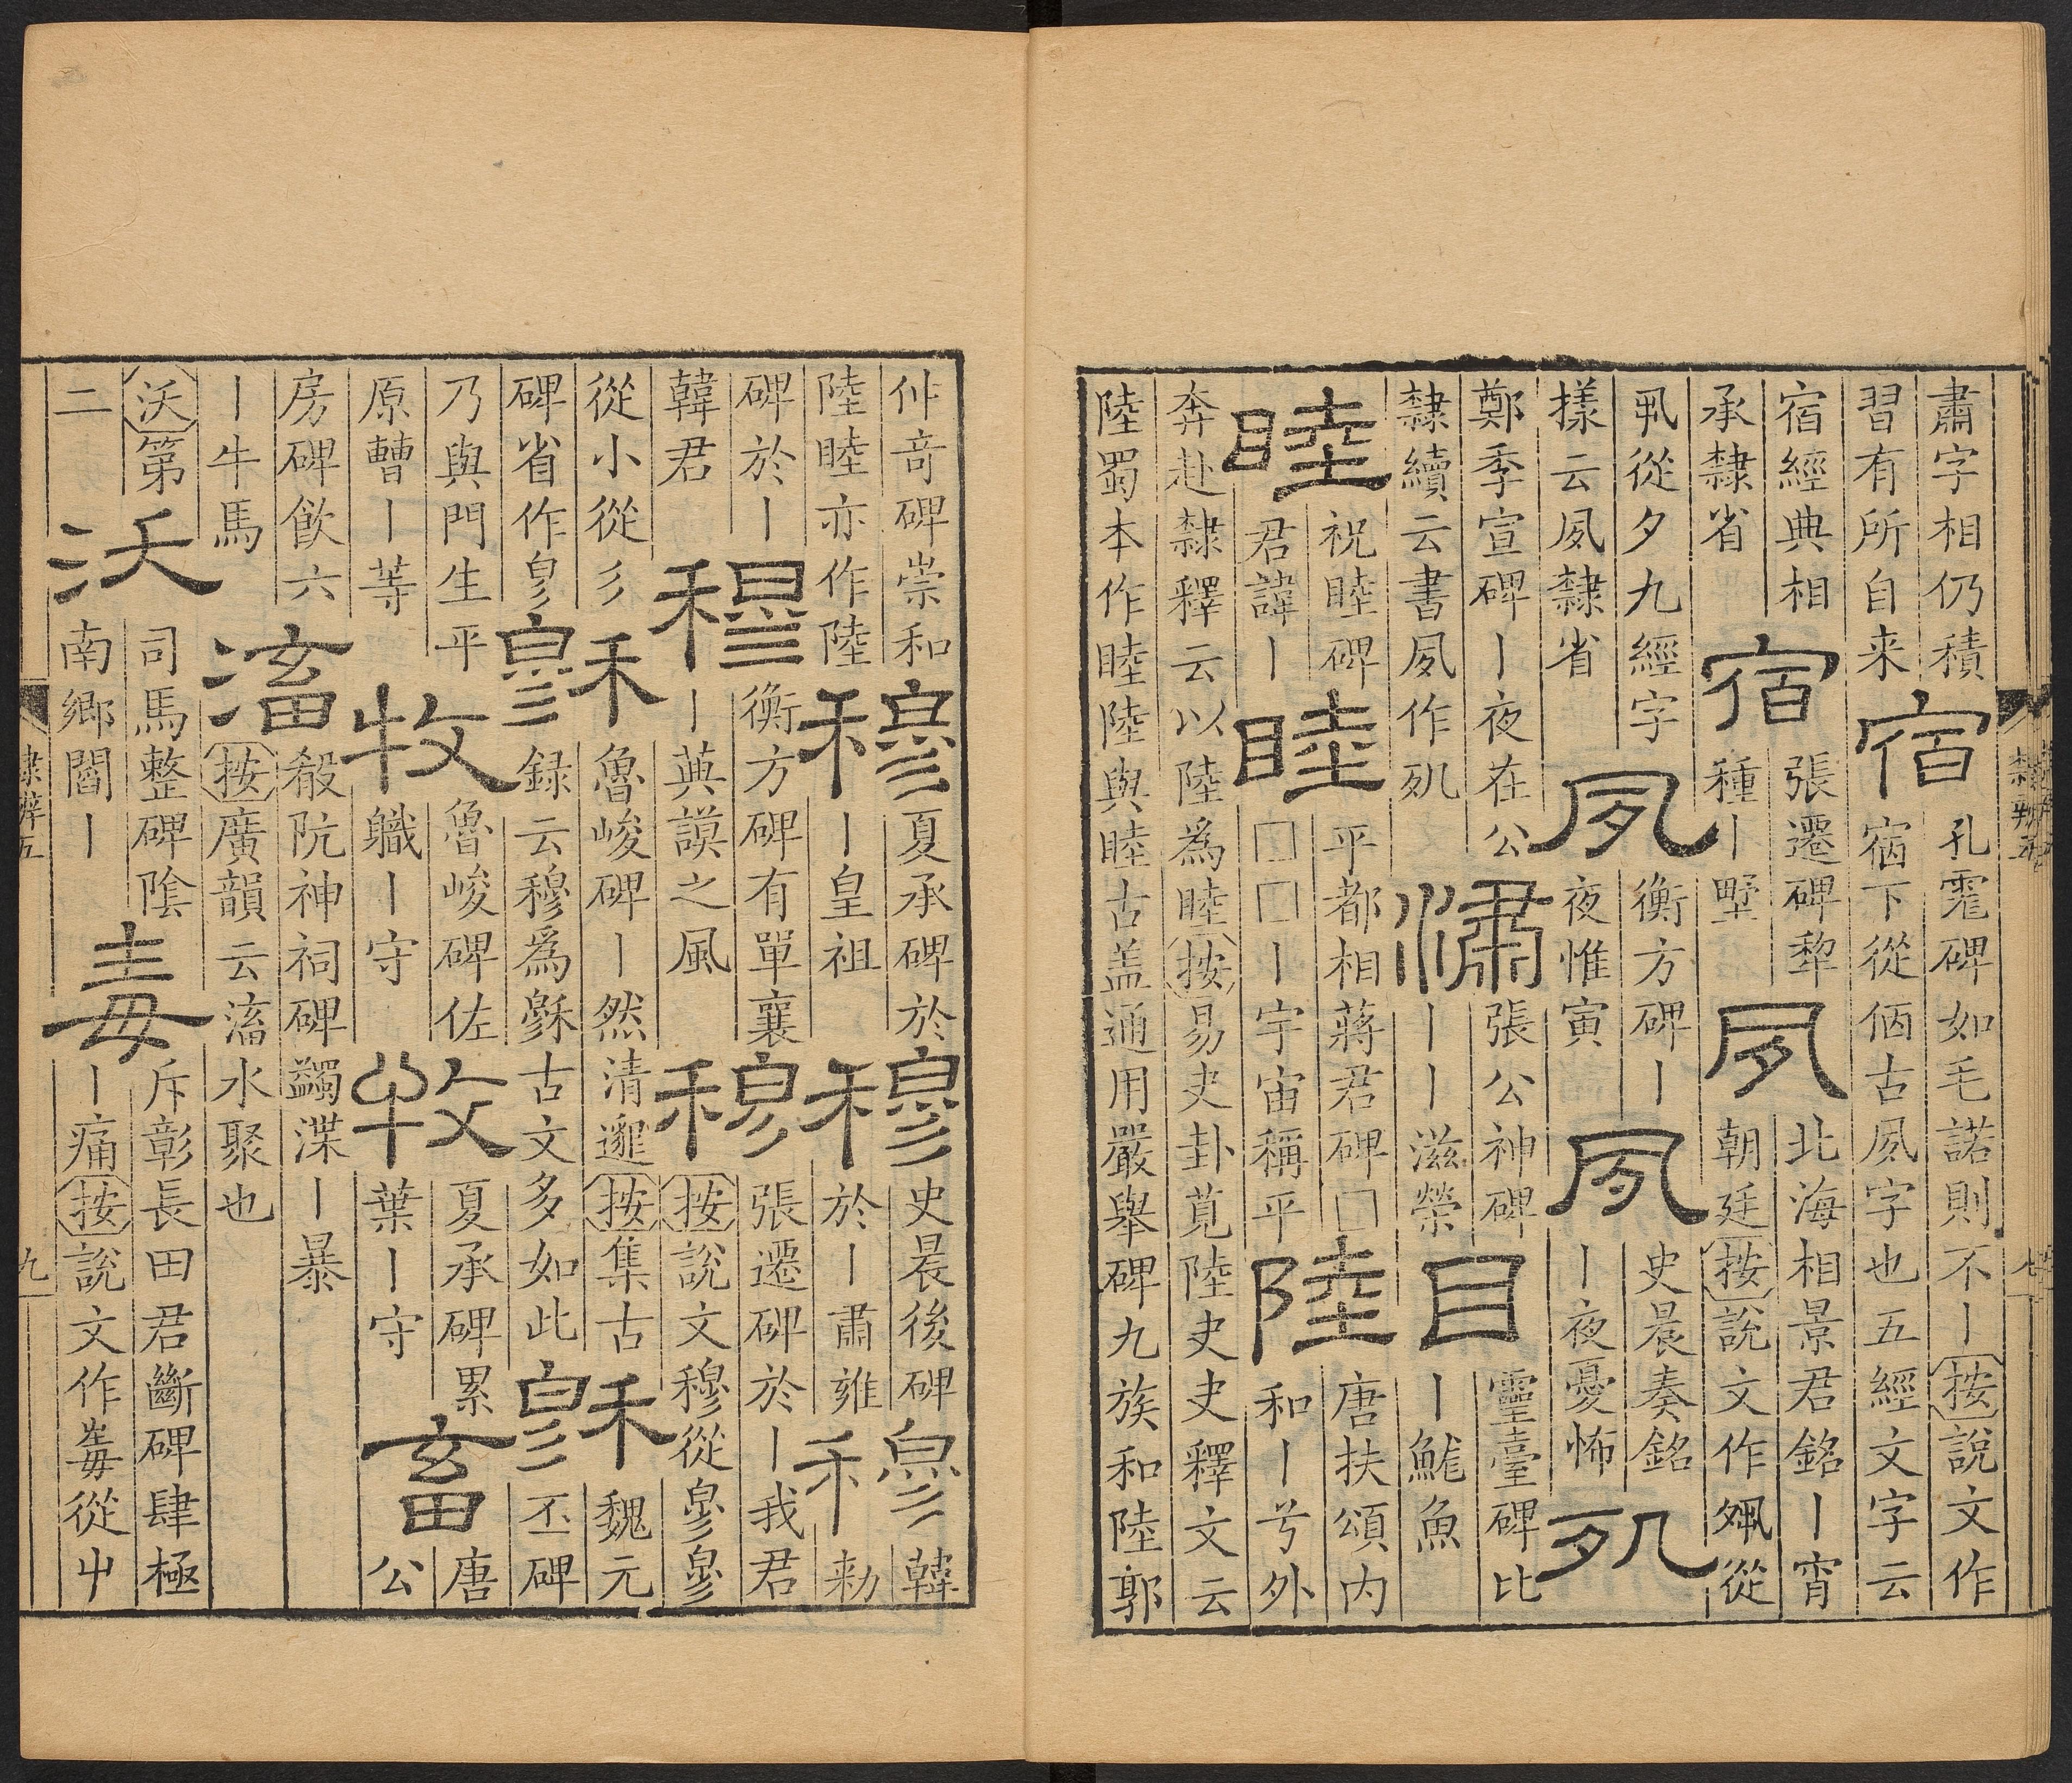 肅字相仍積
習有所自来
宿
孔雹碑如毛諾則不丨按說文作
宿下從佰古夙字也五經文字云
宿經典相
承隸省
宿
張遷碑犂
種丨墅
夙
北海相景君銘丨宵
朝廷按說文作㚈從
丮從夕九經字
樣云夙隸省
夙
衡方碑丨
夜惟寅
夙
史晨奏銘
丨夜憂怖
夙
鄭季宣碑丨夜在公
隸續云書夙作夙
潚
張公神碑
丨丨滋榮
目
靈臺碑比
丨鮵魚
睦
祝睦碑
君諱丨
睦
平都相蔣君碑□
□□丨宇宙稱平
陸
唐扶頌内
和丨兮外
奔赴隸釋云以陸為睦按易夬卦莧陸夬夬釋文云
陸蜀本作睦陸與睦古盖通用嚴舉碑九族和陸郭
隸辨五
仲竒碑崇和
陸睦亦作陸
穆
夏承碑於
丨皇祖
穆
史晨後碑
於丨肅雍
穆
韓
勑
碑於丨
韓君
穆
衡方碑有單襄
丨英謨之風
穆
張遷碑於丨我君
按說文穆從㣎㣎
從小從彡
碑省作㣎
穆
魯峻碑丨然清邈按集古
録云穆爲古文多如此
穆
魏元
丕碑
乃與門生平
原丨等
牧
魯峻碑佐
職丨守
牧
夏承碑累
葉丨守
畜
唐
公
房碑飲六
丨牛馬
滀
殽阬神祠碑蠲渫丨暴
按廣韻云滀水聚也
沃第
二
沃
司馬整碑陰
南鄉閻丨
毒
斥彰長田君斷碑肆極
丨痛按說文作毒從屮
隸辨五
九